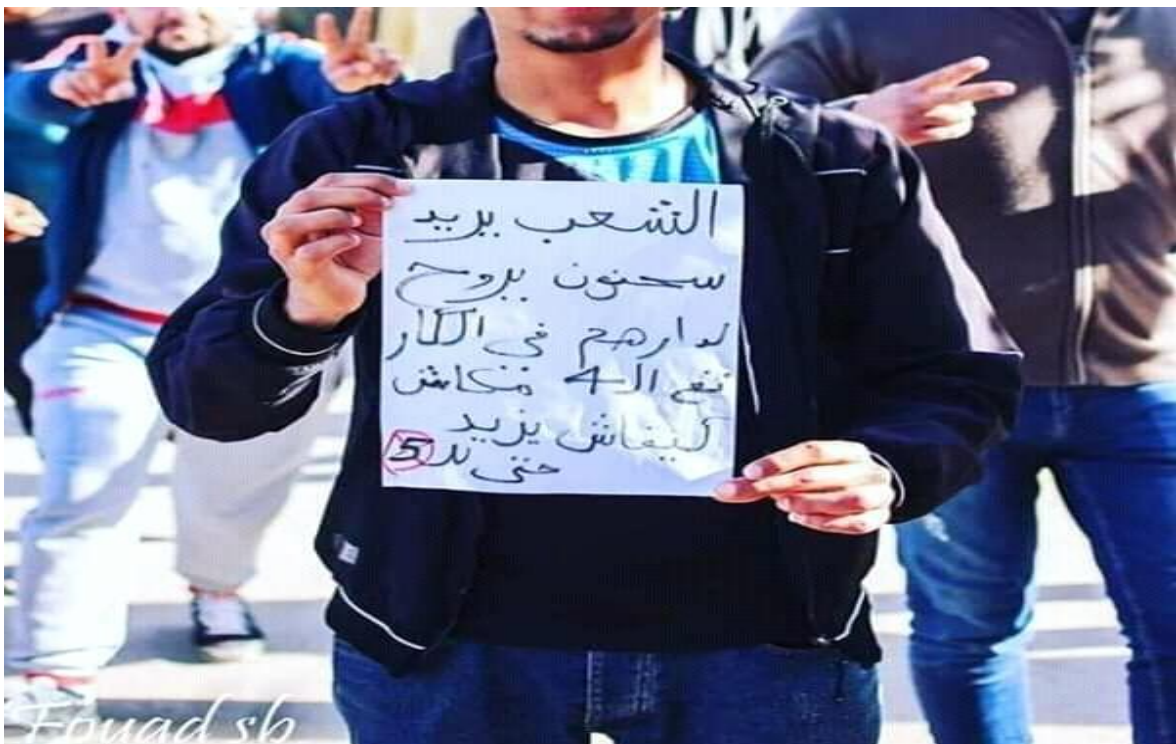 الشعب يريد
سحنون يروح
لدارهم في الكار
نتع الـ4 مكاش
كيفاش يزيد
حتى لـ 5
Fouad sb